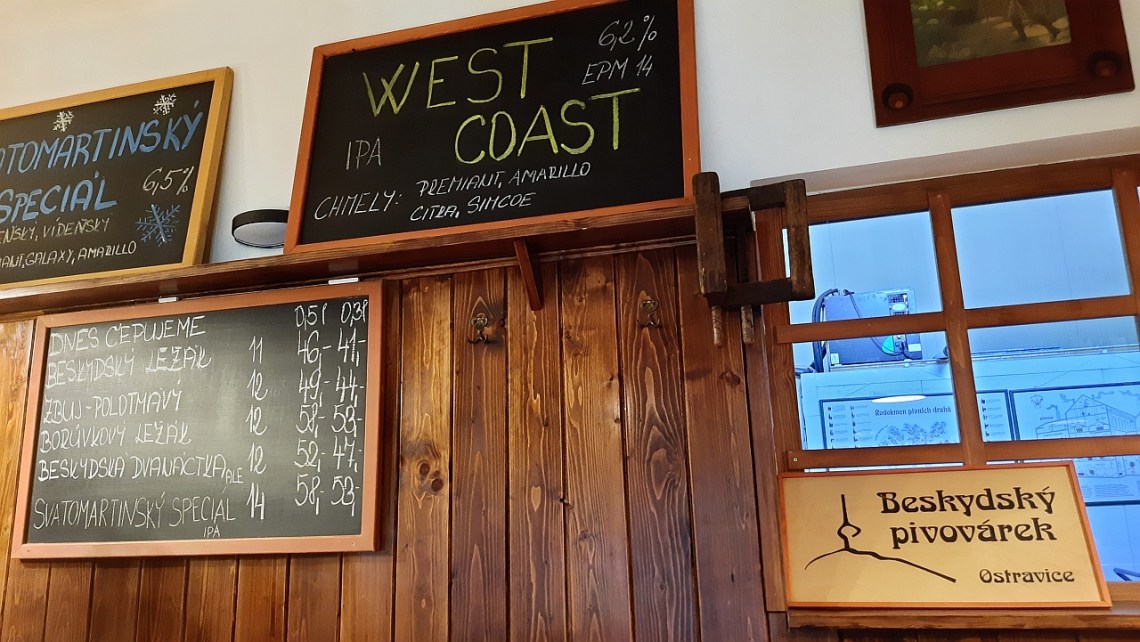 ATOMARTINSKÝ
SPECIÁL
6,5%
ENSKÝ, VÍDEŇSKÝ
IANT, GALAXY, AMARILLO
WEST
COAST
6,2 %
EPM 14
IPA
CHMELY: PREMIANT, AMARILLO
CITRA, SIMCOE
DNES ČEPUJEME 0,5l 0,3l
BESKYDSKÝ LEŽÁK 11 46,- 41,-
ZBUJ-POLOTMAVÝ 12 49,- 44,-
BORŮVKOVÝ LEŽÁK 12 58,- 53,-
BESKYDSKÁ DVANÁCTKA ALE 12 52,- 47,-
SVATOMARTINSKÝ SPECIÁL 14 58,- 53,-
IPA
Rodokmen pivních druhů
Beskydský
pivovárek
Ostravice